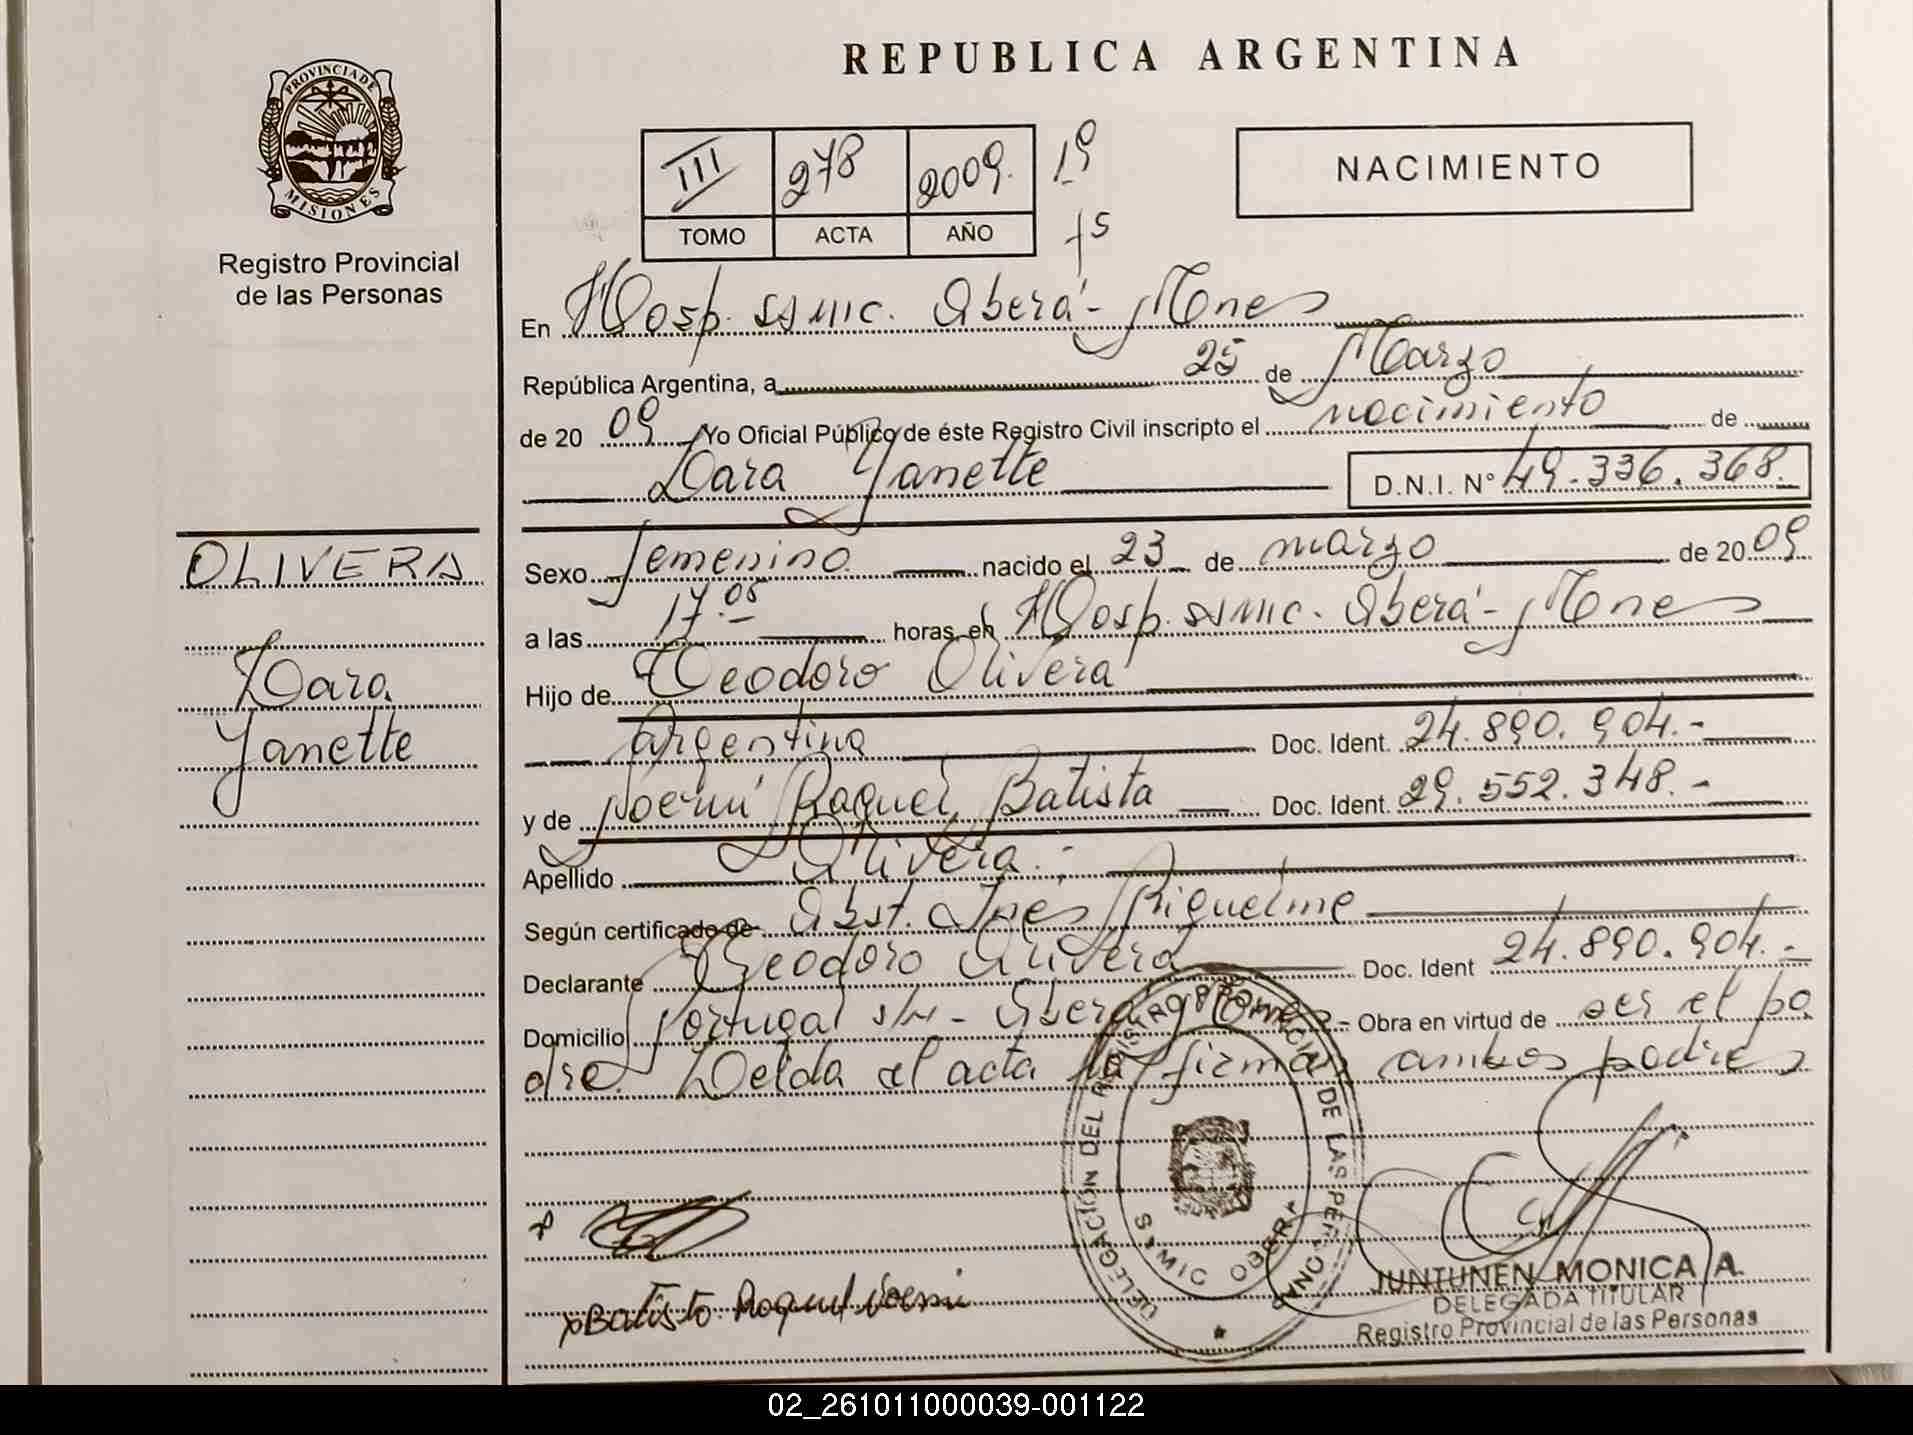 REPUBLICA ARGENTINA
PROVINCIA DE
MISIONES
Registro Provincial
de las Personas
III 278 2009. 19
TOMO ACTA AÑO fs
NACIMIENTO
En Hosp. SAMIC. Oberá - Mnes
República Argentina, a 25 de Marzo
de 2009 Yo Oficial Público de éste Registro Civil inscripto el nacimiento de
Dara Yanette D.N.I. N° 49.336.368.
OLIVERA
Dara
Yanette
Sexo femenino nacido el 23 de marzo de 2009
a las 17 05 horas, en Hosp. SAMIC. Oberá - Mnes
Hijo de Teodoro Olivera
argentino Doc. Ident. 24.890.904.-
y de Noemí Raquel Batista Doc. Ident. 29.552.348.-
Apellido Olivera.-
Según certificado de Obst. Inés Riquelme
Declarante Teodoro Olivera Doc. Ident 24.890.904.-
Domicilio Portugal s/n - Oberá Mnes - Obra en virtud de ser el pa
dre. Leída el acta la firman ambos padres
DELEGACIÓN DEL REGISTRO PROVINCIAL DE LAS PERSONAS
SAMIC OBERA
x Batista Raquel Noemi
JUNTUNEN MONICA A.
DELEGADA TITULAR
Registro Provincial de las Personas
02_261011000039-001122